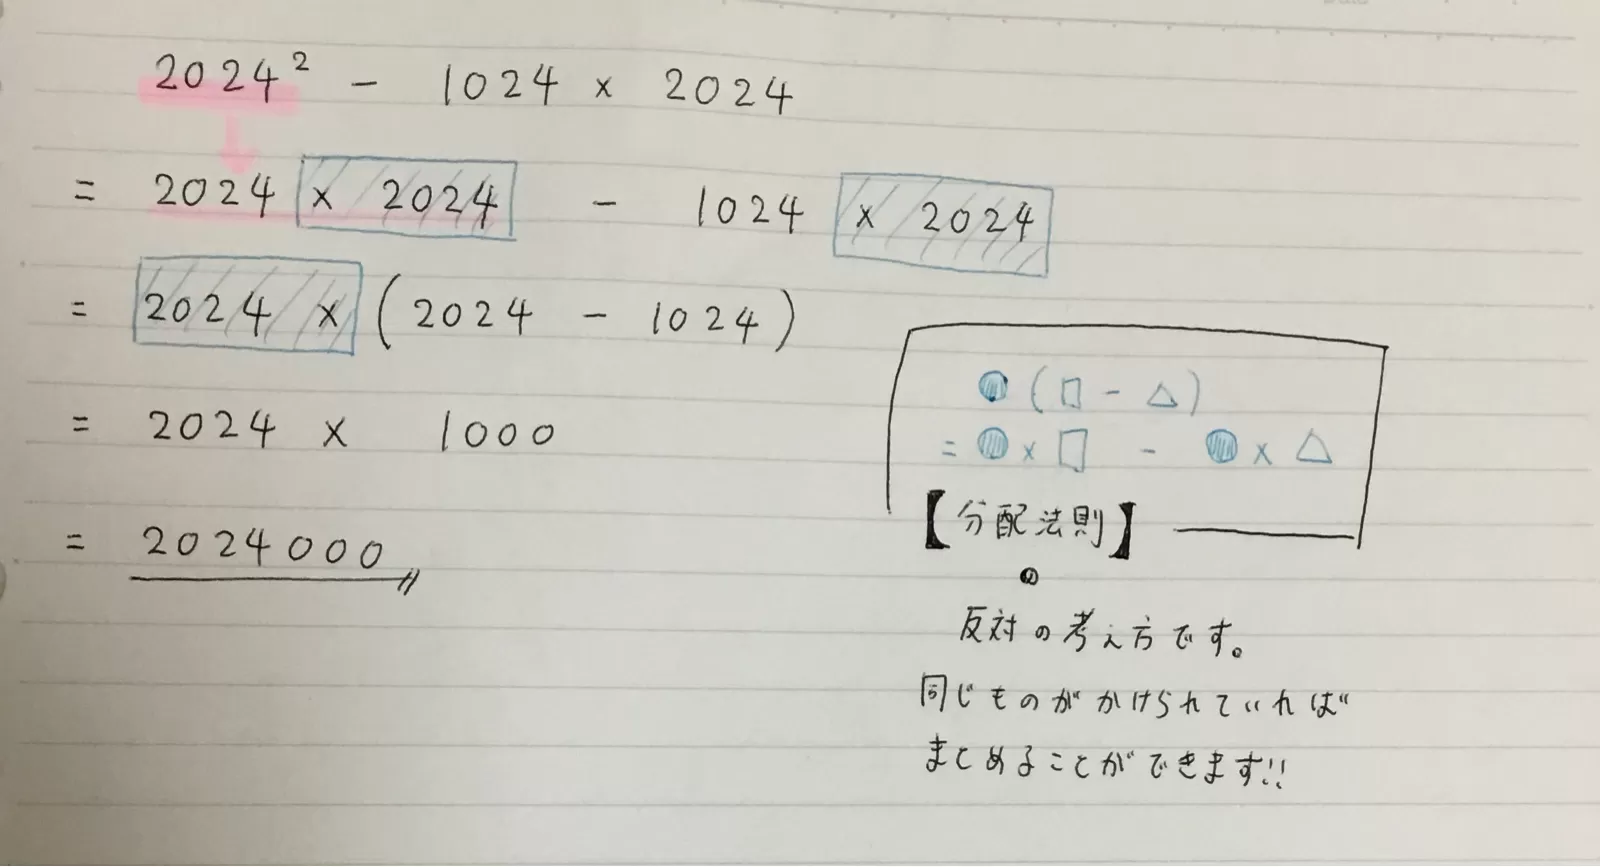 2024² - 1024 × 2024
= 2024 × 2024 - 1024 × 2024
= 2024 × (2024 - 1024)
= 2024 × 1000
= 2024000
●(□ - △)
= ●×□ - ●×△
【分配法則】
の
反対の考え方です。
同じものがかけられていれば
まとめることができます!!